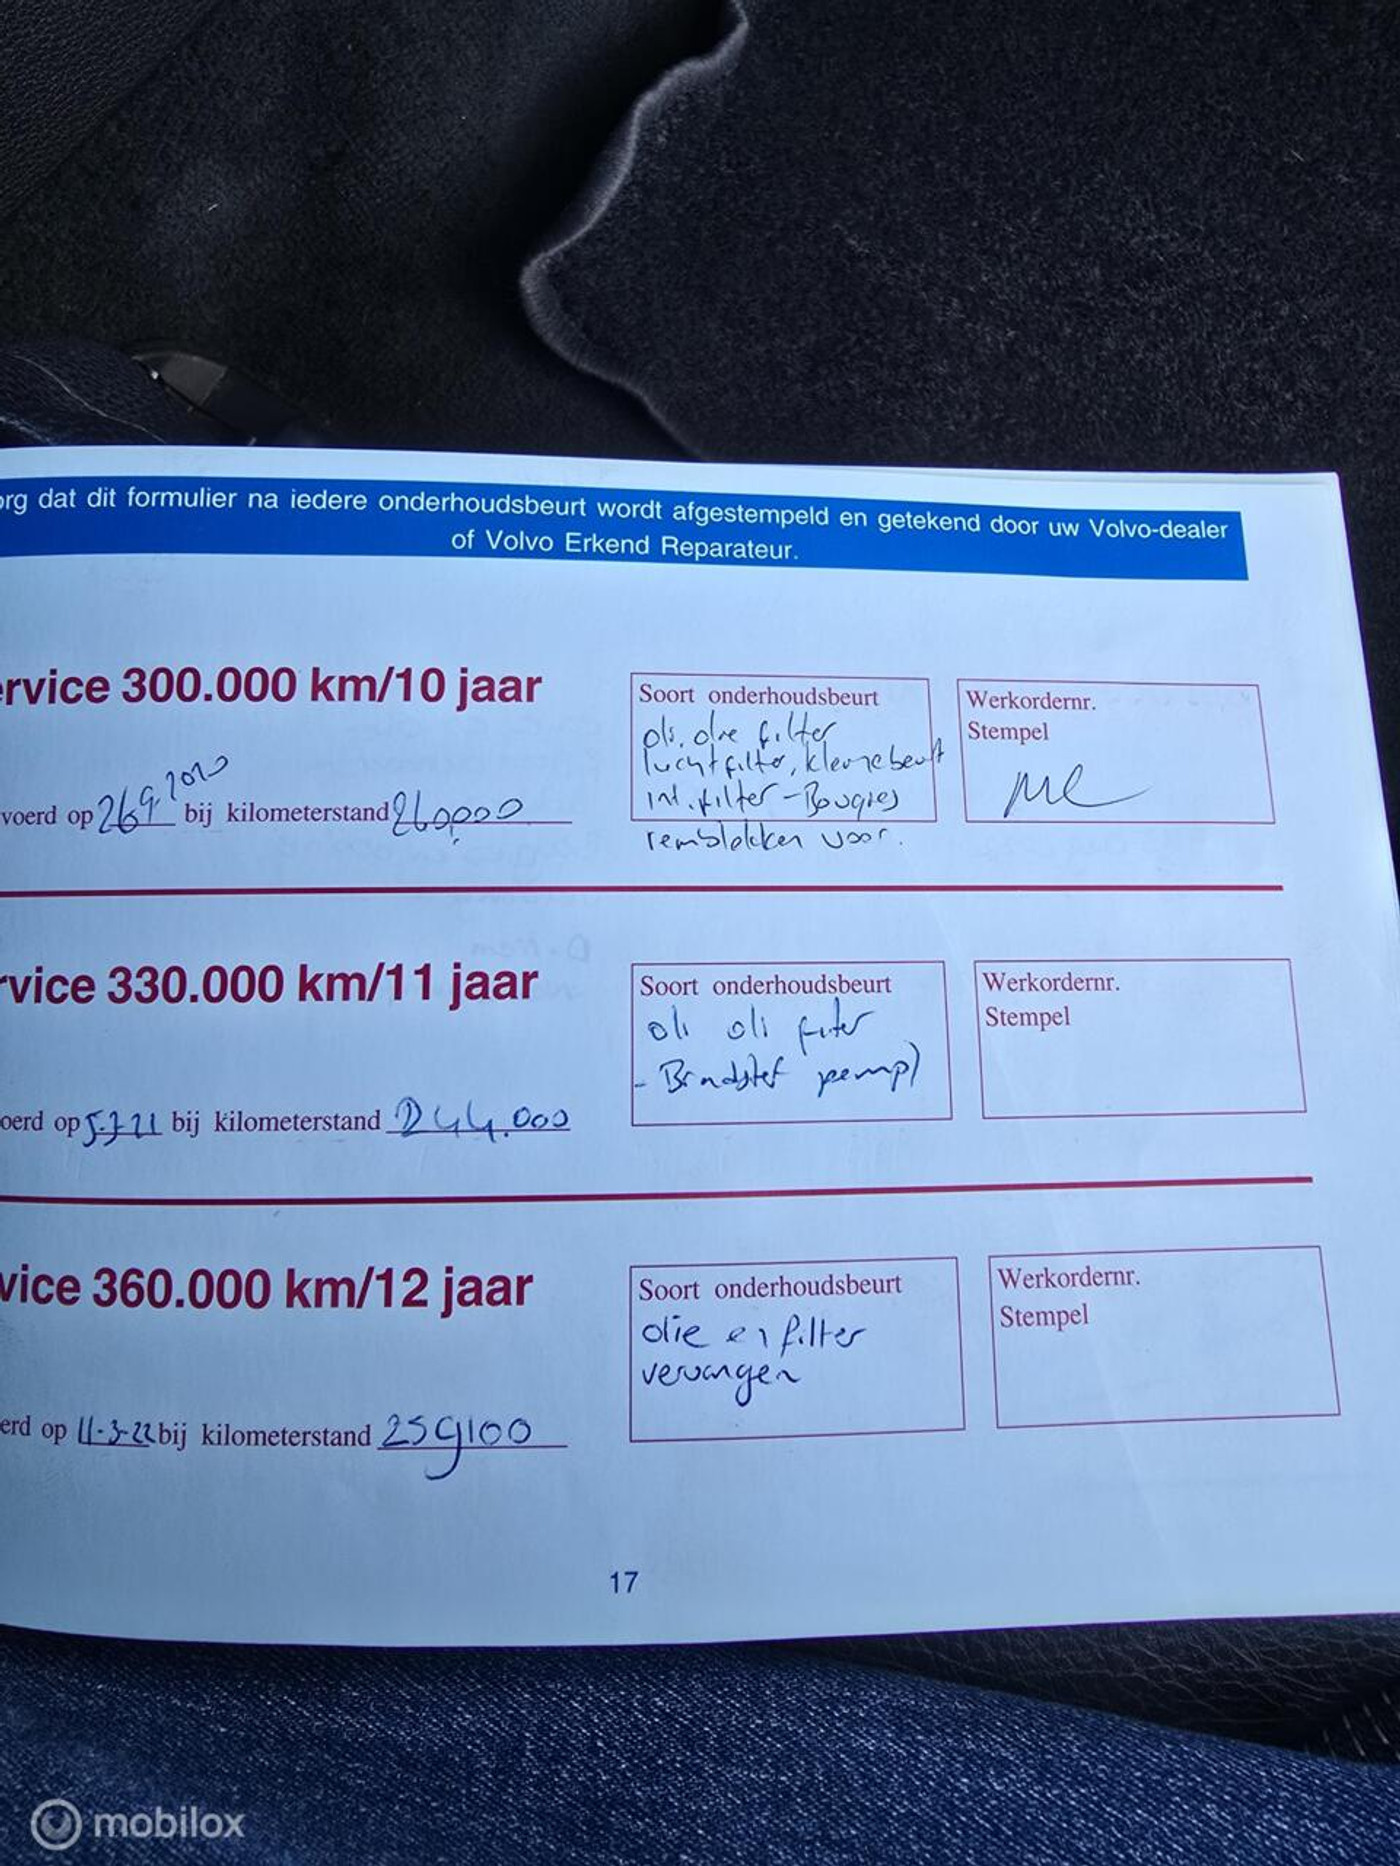 org dat dit formulier na iedere onderhoudsbeurt wordt afgestempeld en getekend door uw Volvo-dealer
of Volvo Erkend Reparateur.
ervice 300.000 km/10 jaar
Soort onderhoudsbeurt
oli. olie filter
luchtfilter, kleine beurt
int. filter - Bougies
remblokken voor.
Werkordernr.
Stempel
voerd op 26 9. 2020 bij kilometerstand 260000
rvice 330.000 km/11 jaar
Soort onderhoudsbeurt
oli oli filter
- Brandstof pomp)
Werkordernr.
Stempel
oerd op 5-7 21 bij kilometerstand 244.000
vice 360.000 km/12 jaar
Soort onderhoudsbeurt
olie en filter
vervangen
Werkordernr.
Stempel
erd op 11-3-22 bij kilometerstand 259100
17
mobilox